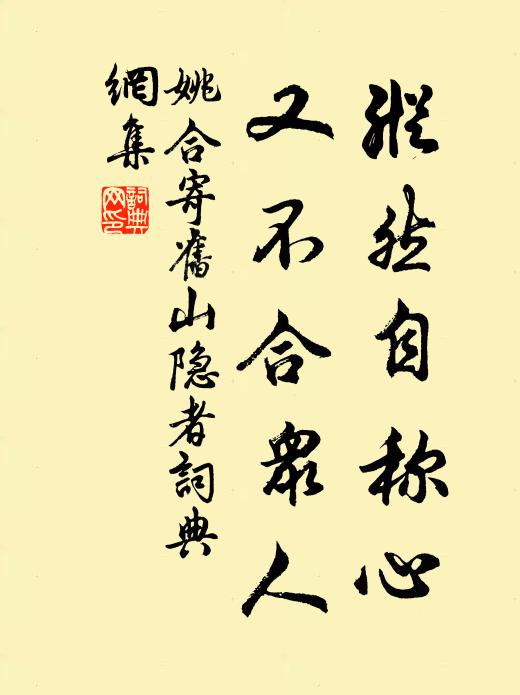 縱然自称心
又不合衆人
姚合寄舊山隐者詞典
網集
詞典
网印